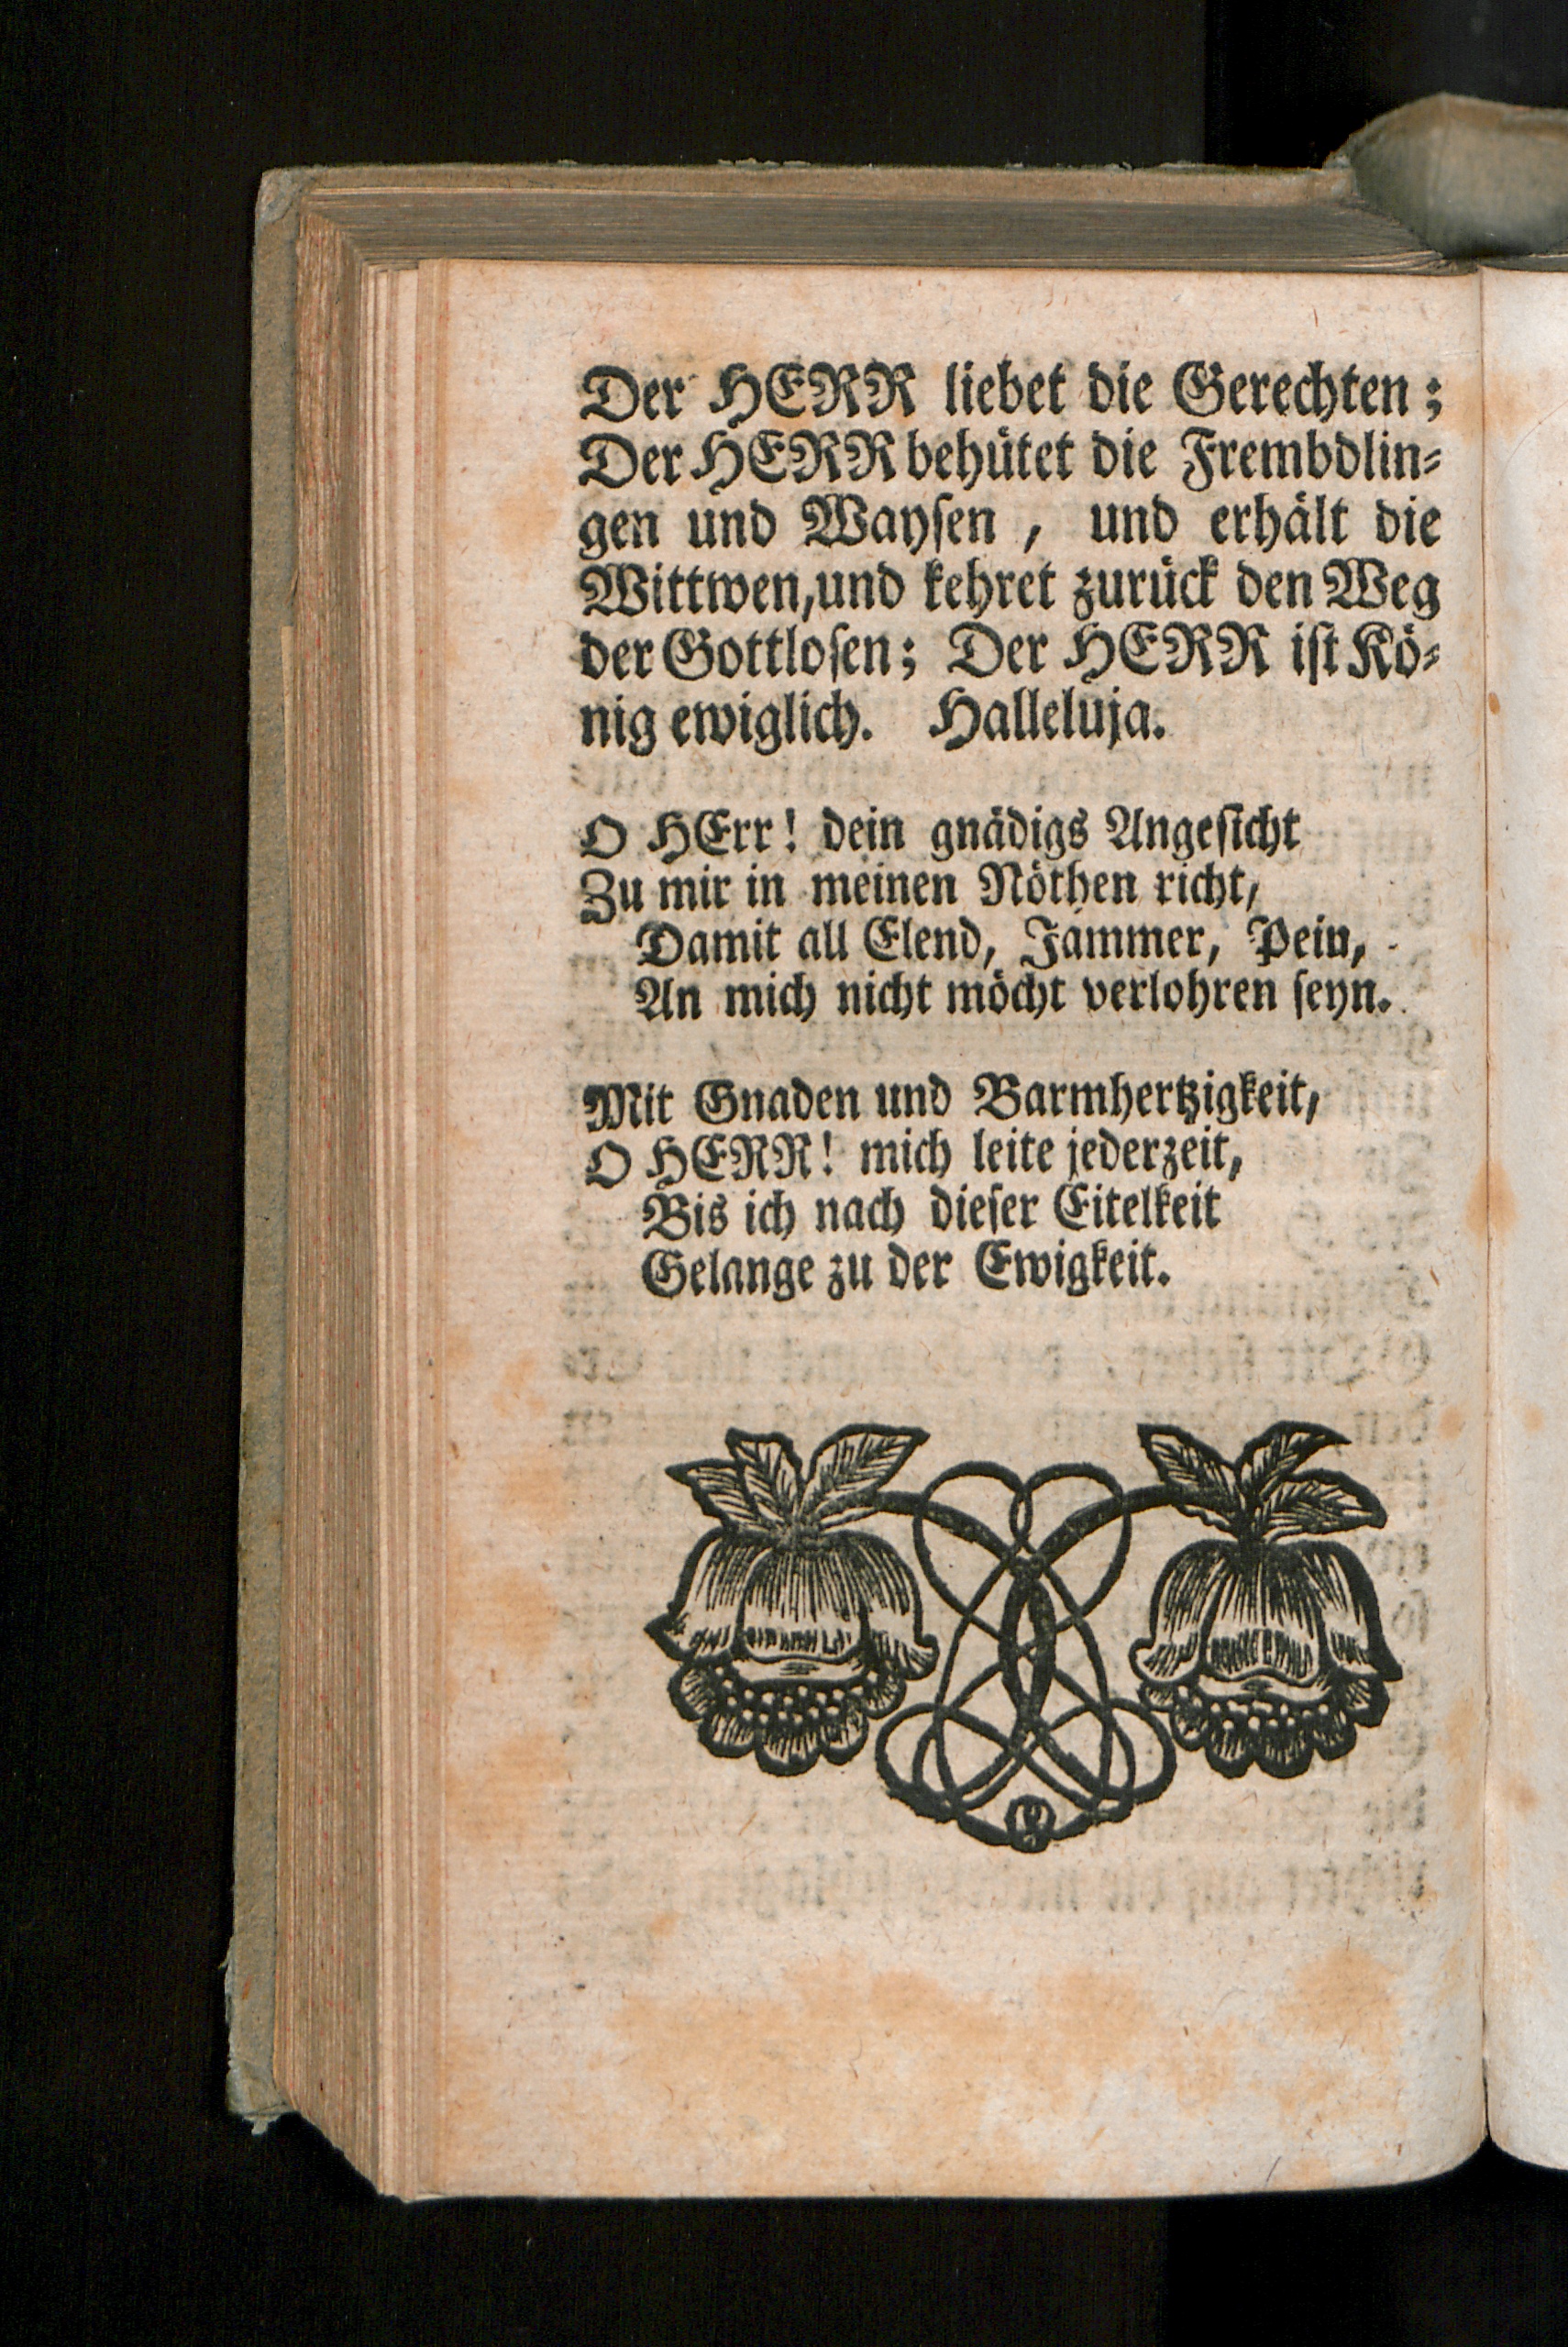 Der HERR liebet die Gerechten;
Der HERR behütet die Frembdlin-
gen und Waysen, und erhält die
Wittwen, und kehret zurück den Weg
der Gottlosen; Der HERR ist Kö-
nig ewiglich. Halleluja.
O HErr! dein gnädigs Angesicht
Zu mir in meinen Nöthen richt,
Damit all Elend, Jammer, Pein,
An mich nicht möcht verlohren seyn.
Mit Gnaden und Barmhertzigkeit,
O HERR! mich leite jederzeit,
Bis ich nach dieser Eitelkeit
Gelange zu der Ewigkeit.